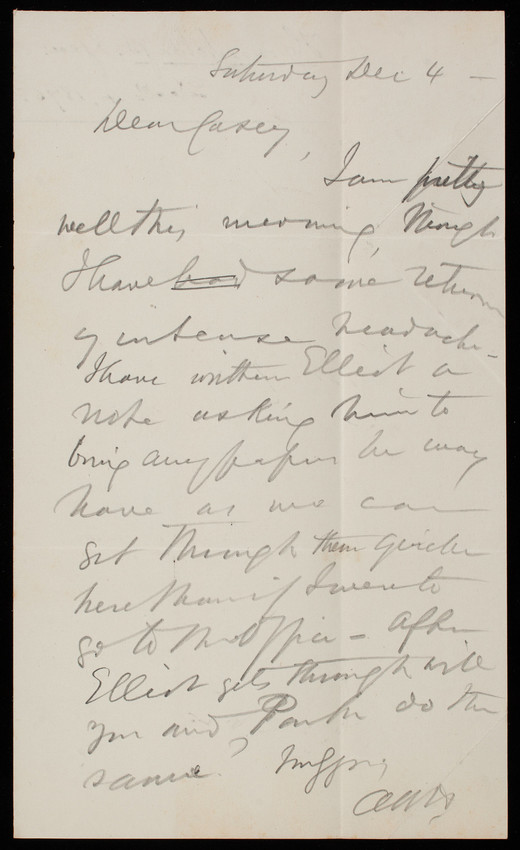 Saturday Dec 4 —
Dear Casey,
I am pretty
well this morning, though
I have had some return
of intense headache —
I have written Elliot a
note asking him to
bring any papers he may
have as we can
get through them quicker
here than if I were to
go to the Office — After
Elliot gets through will
you and Park do the
same?